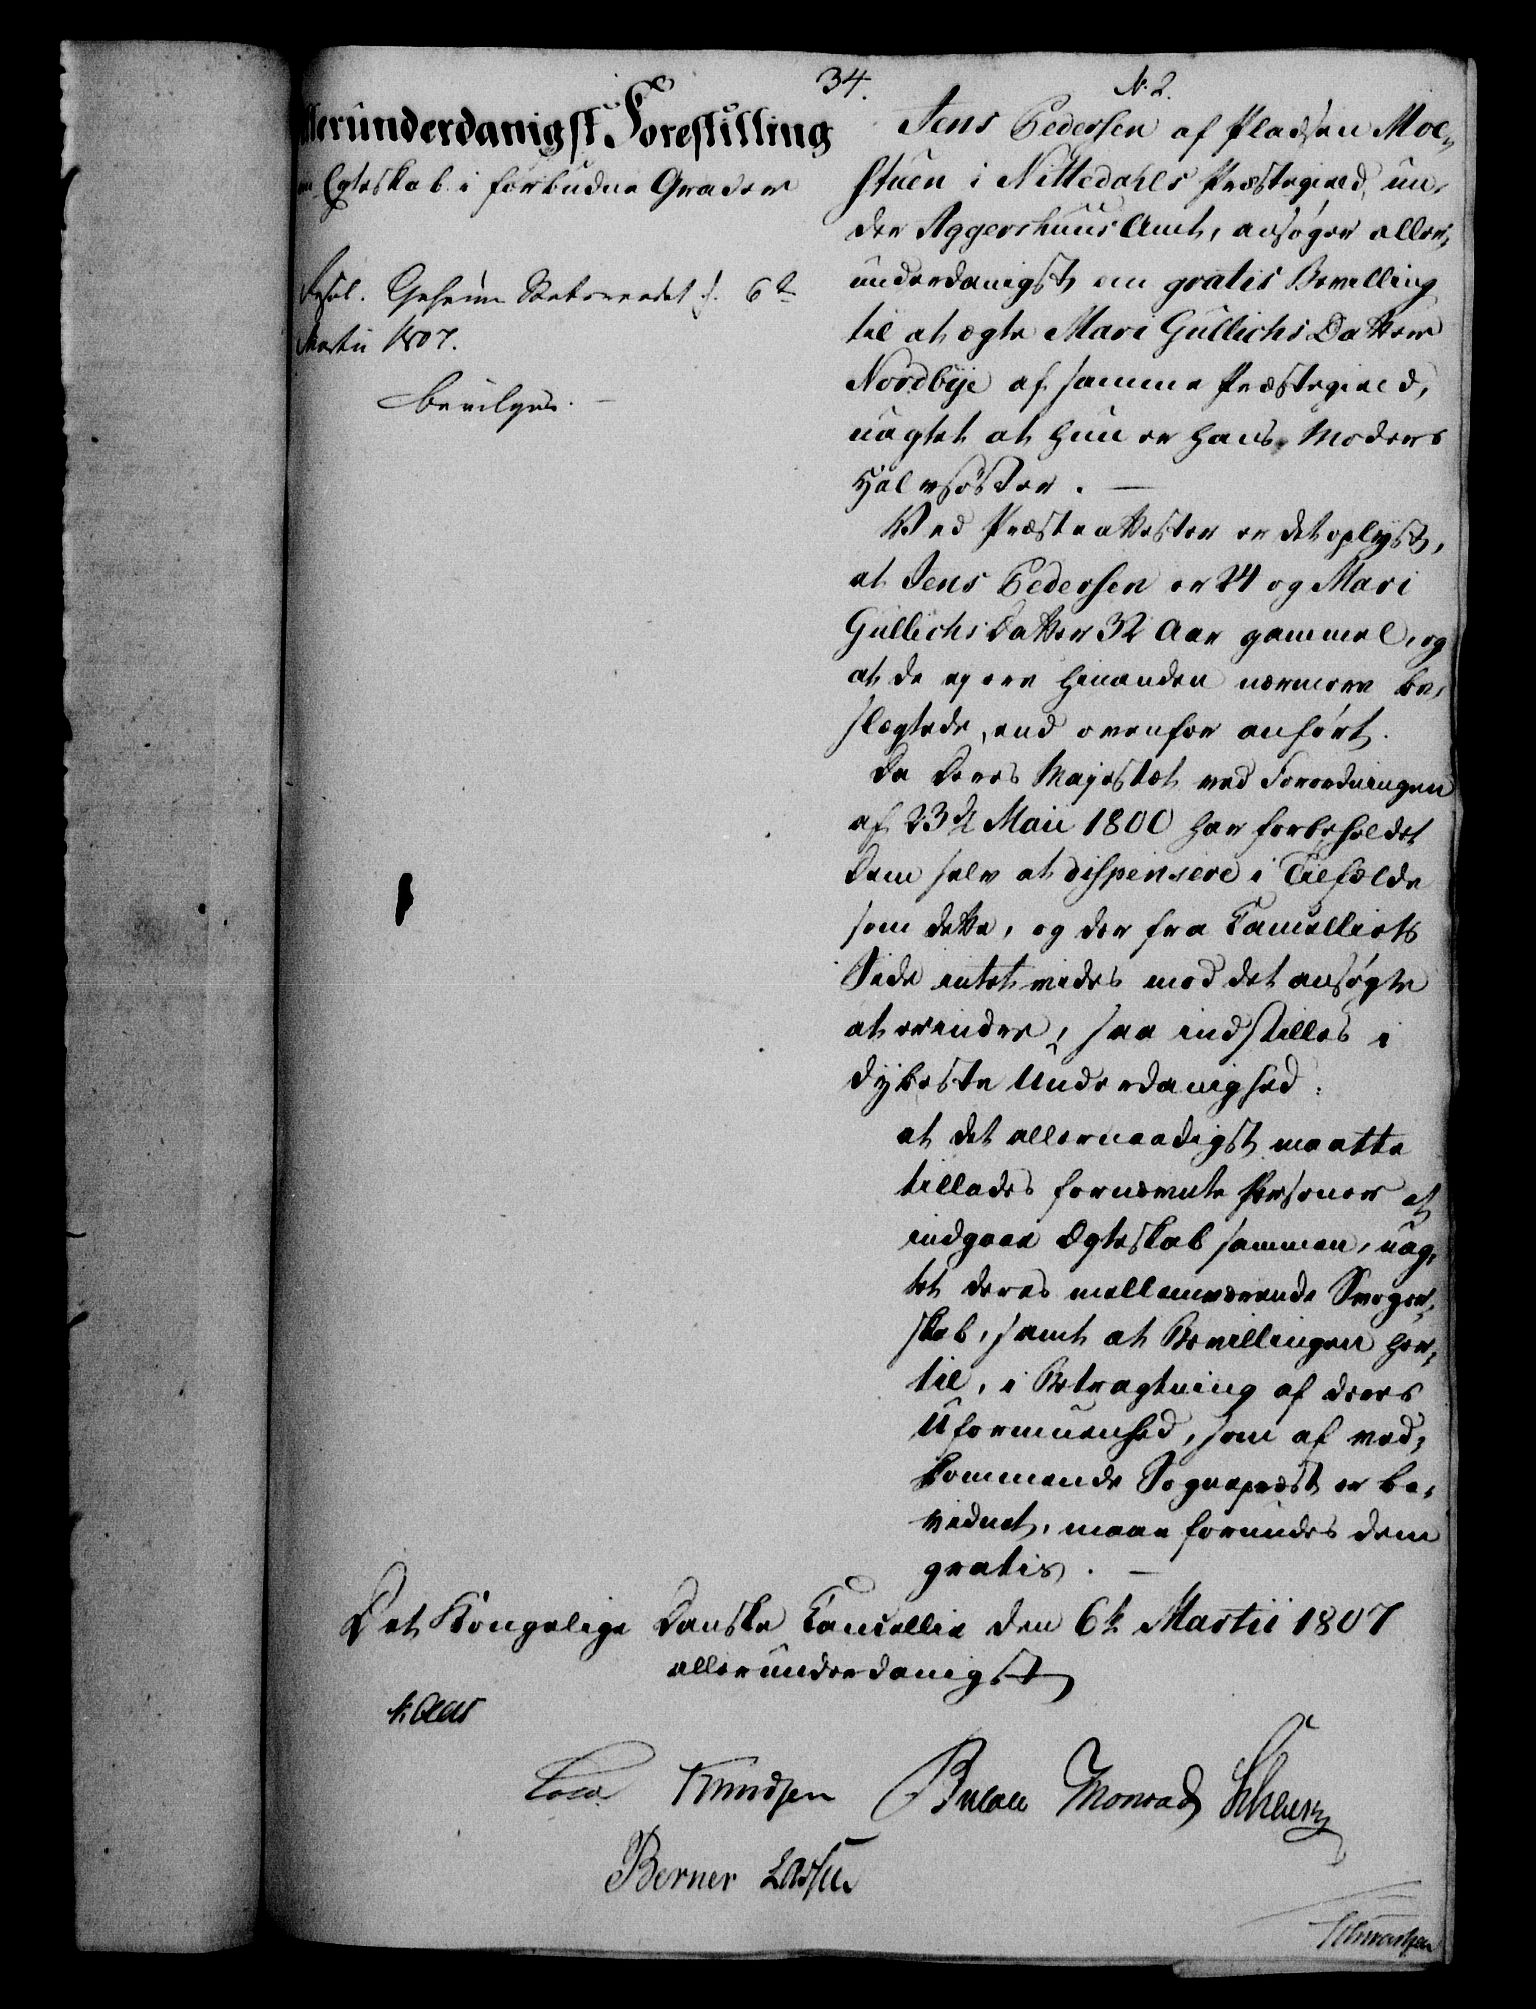 34.
Allerunderdanigst Forestilling
om Egteskab i forbudne Grader
Resol. Geheime Statsraadet d. 6te
Martii 1807.
bevilges. —
N. 2.
Jens Pedersen af Pladsen Moe-
stuen i Nittedahls Præstegield, un-
der Aggershuus Amt, ansøger aller-
underdanigst om gratis Bevilling
til at ægte Mari Gullichs Datter
Nordbÿe af samme Præstegield,
uagtet at hun er hans Moders
Halvsøster. —
Ved Præsteattester er det oplyst,
at Jens Pedersen er 24 og Mari
Gullichs Datter 32 Aar gammel, og
at de ey ere hinanden nærmere be-
slægtede, end ovenfor anført.
Da Deres Majestæt ved Forordningen
af 23de Maii 1800 har forbeholdet
Dem selv at dispensere i Tilfælde
som dette, og der fra Cancelliets
Side intet vides mod det ansøgte
at erindre, saa indstilles i
dybeste Underdanighed:
at det allernaadigst maatte
tillades fornævnte Personer at
indgaae Ægteskab sammen, uag-
tet deres mellemværende Svoger-
skab, samt at Bevillingen her-
til, i Betragtning af deres
Uformuenhed, som af ved-
kommende Sognepræst er be-
vidnet, maae forundes dem
gratis. —
Det Kongelige Danske Cancellie den 6te Martii 1807
allerunderdanigst
Kaas
Knudsen Bülow Monrad
Berner Lassen